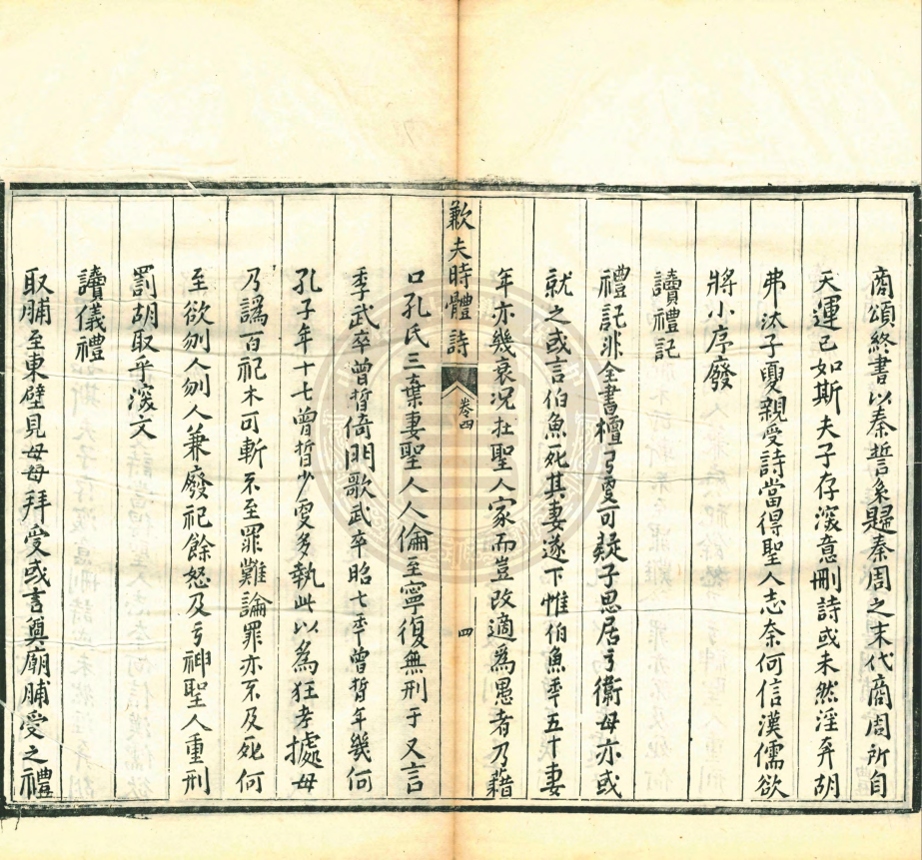 商頌終書以秦誓系題秦周之末代商周所自
天運已如斯夫子存深意刪詩或未然淫奔胡
弗汰子夏親受詩當得聖人志奈何信漢儒欲
將小序廢
讀禮記
禮記非全書檀弓更可疑子思居于衞母亦或
就之或言伯魚死其妻遂下惟伯魚年五十妻
年亦幾衰况在聖人家而豈改適爲愚者乃藉
歉夫時體詩
卷四
四
口孔氏三棄妻聖人人倫至寧復無刑于又言
季武卒曾晳倚門歌武卒昭七年曾晳年幾何
孔子年十七曾晳少更多執此以爲狂考據毋
乃譌百祀木可斬不至罪難論罪亦不及死何
至欲刎人刎人兼廢祀餘怒及于神聖人重刑
罰胡取乎深文
讀儀禮
取脯至東壁見母母拜受或言奠廟脯受之禮